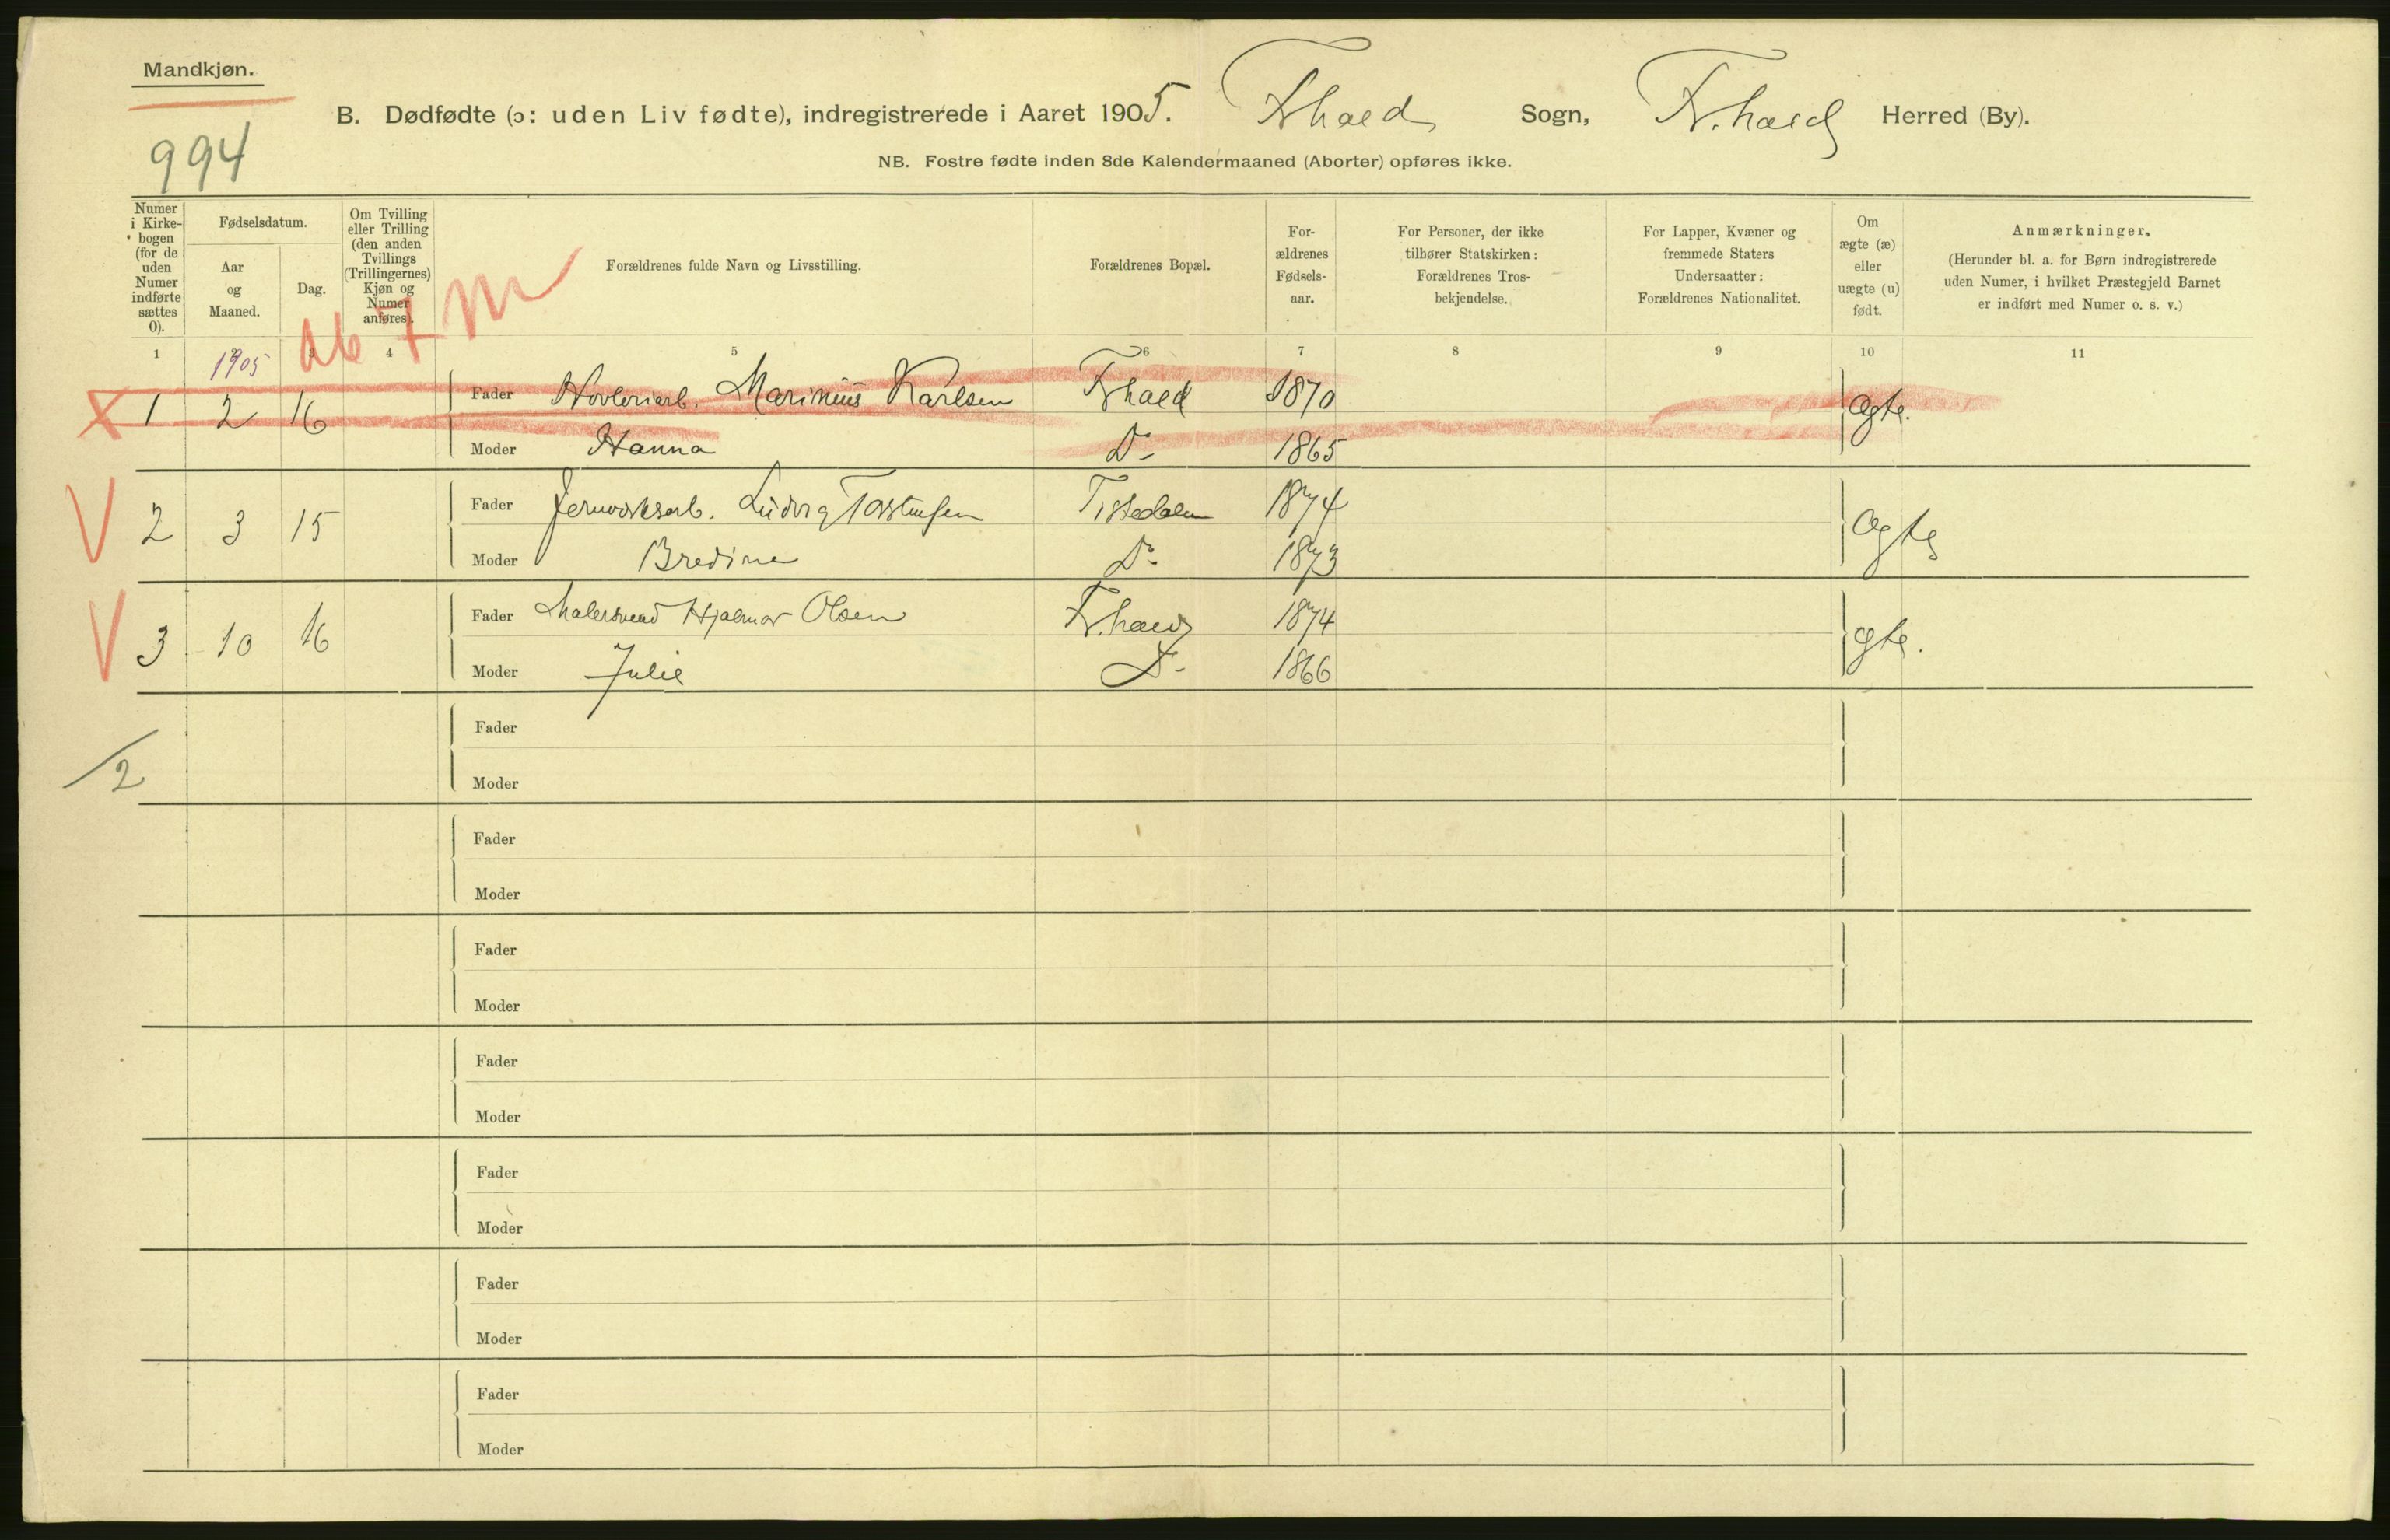 Mandkjøn.
994
B. Dødfødte (ɔ: uden Liv fødte), indregistrerede i Aaret 1905. Fr.hald Sogn, Fr.hald Herred (By).
NB. Fostre fødte inden 8de Kalendermaaned (Aborter) opføres ikke.
Numer i Kirke- bogen (for de uden Numer indførte sættes 0).
Fødselsdatum.
Aar og Maaned.
Dag.
Om Tvilling eller Trilling (den anden Tvillings (Trillingernes) Kjøn og Numer anføres).
Forældrenes fulde Navn og Livsstilling.
Forældrenes Bopæl.
For- ældrenes Fødsels- aar.
For Personer, der ikke tilhører Statskirken: Forældrenes Tros- bekjendelse.
For Lapper, Kvæner og fremmede Staters Undersaatter: Forældrenes Nationalitet.
Om ægte (æ) eller uægte (u) født.
Anmærkninger.
(Herunder bl. a. for Børn indregistrerede uden Numer, i hvilket Præstegjeld Barnet er indført med Numer o. s. v.)
ab 7 m
1 2 3 4 5 6 7 8 9 10 11
1905
X 1 2 16 Fader Høvleriarb. Marinius Karlsen Fr.hald 1870 Ægte.
Moder Hanna Do 1865
V 2 3 15 Fader Jernverksarb. Ludvig Torstensen Tistedalen 1874 Ægte
Moder Bredine Do 1873
V 3 10 16 Fader Malersvend Hjalmar Olsen Fr.hald 1874 Ægte.
Moder Julie Do 1866
Fader
Moder
/2
Fader
Moder
Fader
Moder
Fader
Moder
Fader
Moder
Fader
Moder
Fader
Moder